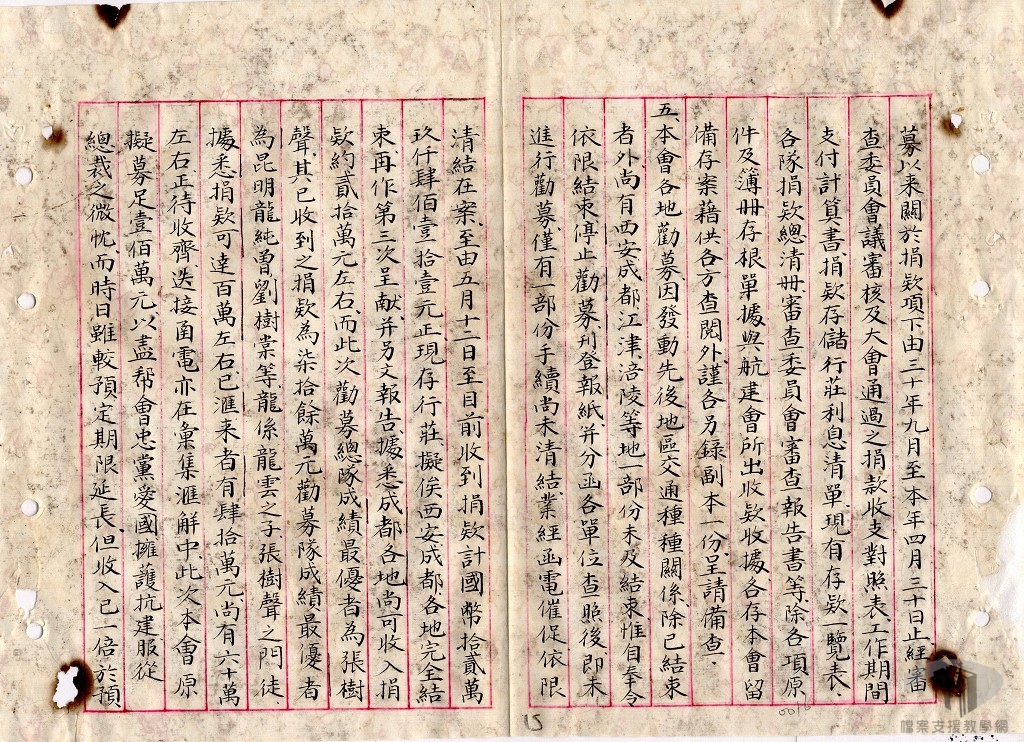 募以来關於捐欵項下由三十年九月至本年四月三十日止經審
查委員會議審核及大會通過之捐款收支對照表工作期間
支付計算書、捐欵存儲行莊利息清單、現有存欵一覽表
各隊捐欵總清冊審查委員會審查報告書等除各項原
件及簿冊存根單據與航建會所出收欵收據各存本會留
備存案藉供各方查閱外謹各另錄副本一份呈請備查．
五、本會各地勸募因發動先後地區交通種種關係除已結束
者外尚有西安成都江津涪陵等地一部份未及結束惟自奉令
依限結束停止勸募刊登報紙并分函各單位查照後即未
進行勸募僅有一部份手續尚未清結業經函電催促依限
清結在案、至由五月十一日至目前收到捐欵計國幣拾貳萬
玖仟肆佰壹拾壹元正現存行莊、擬俟西安成都各地完全結
束、再作第三次呈献并另文報告、據悉成都各地尚可收入捐
欵約貳拾萬元左右、而此次勸募總隊成績最優者為張樹
聲、其已收到之捐欵為柒拾餘萬元、勸募隊成績最優者
為昆明龍純曾、劉樹棠等龍係龍雲之子、張樹聲之門徒、
據悉捐欵可達百萬左右、已滙来者有肆拾萬元尚有六十萬
左右正待收齊、迭接函電亦在彙集滙解中、此次本會原
擬募足壹佰萬元、以盡帮會忠黨愛國擁護抗建服從
總裁之微忱、而時日雖較預定期限延長、但收入已一倍於預
15
0016
檔案支援教學網